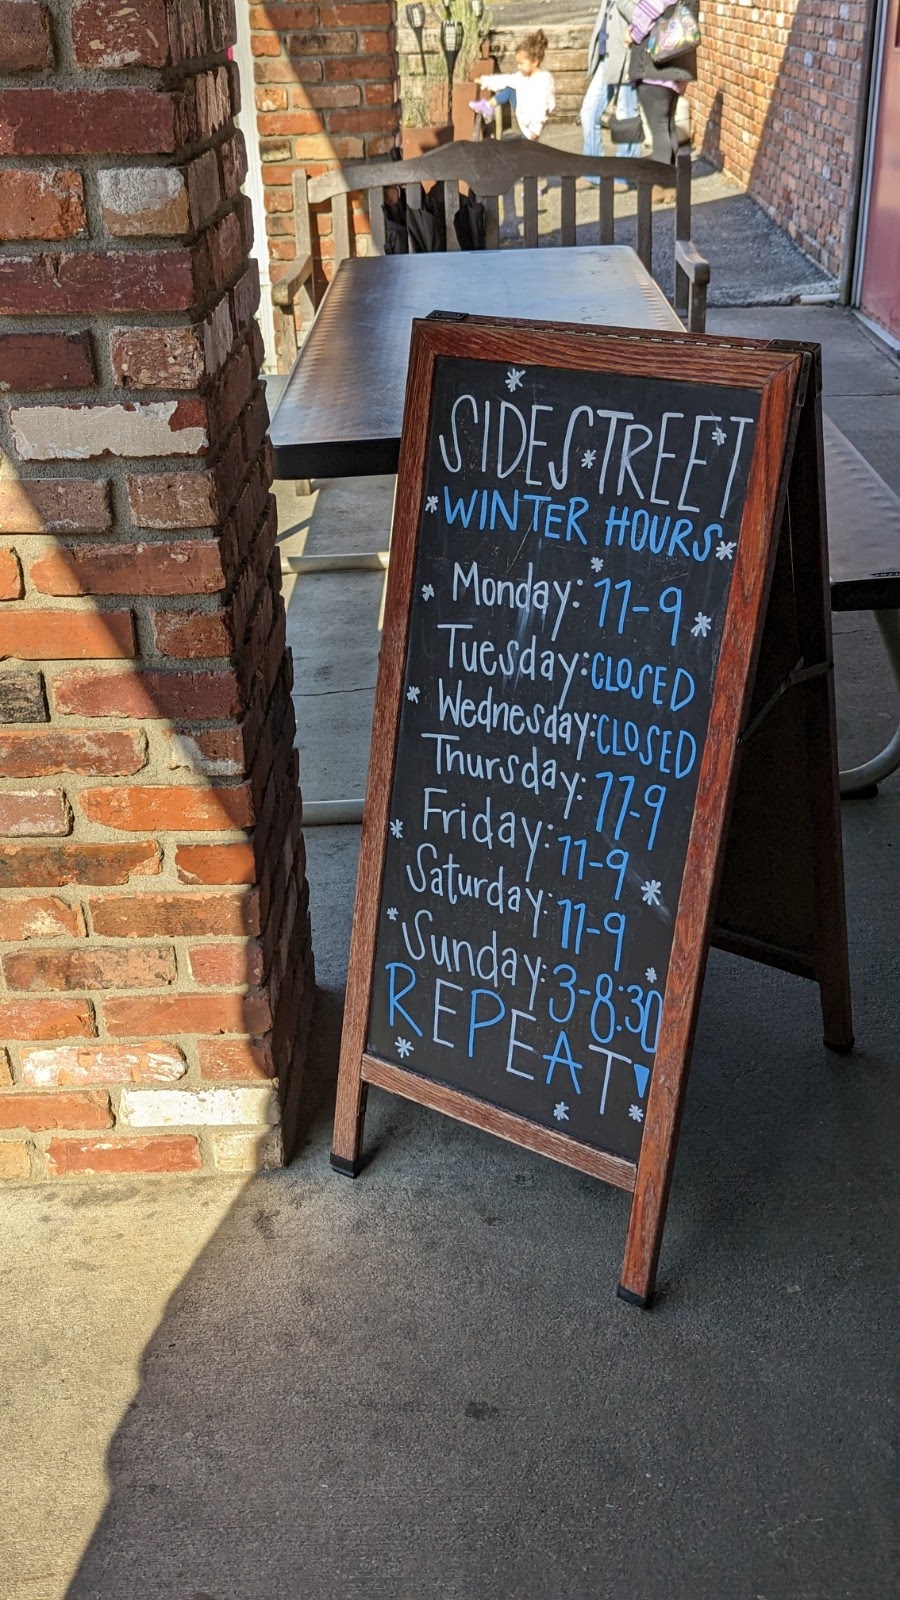 SIDESTREET
WINTER HOURS
Monday: 11-9
Tuesday: CLOSED
Wednesday: CLOSED
Thursday: 11-9
Friday: 11-9
Saturday: 11-9
Sunday: 3-8:30
REPEAT!